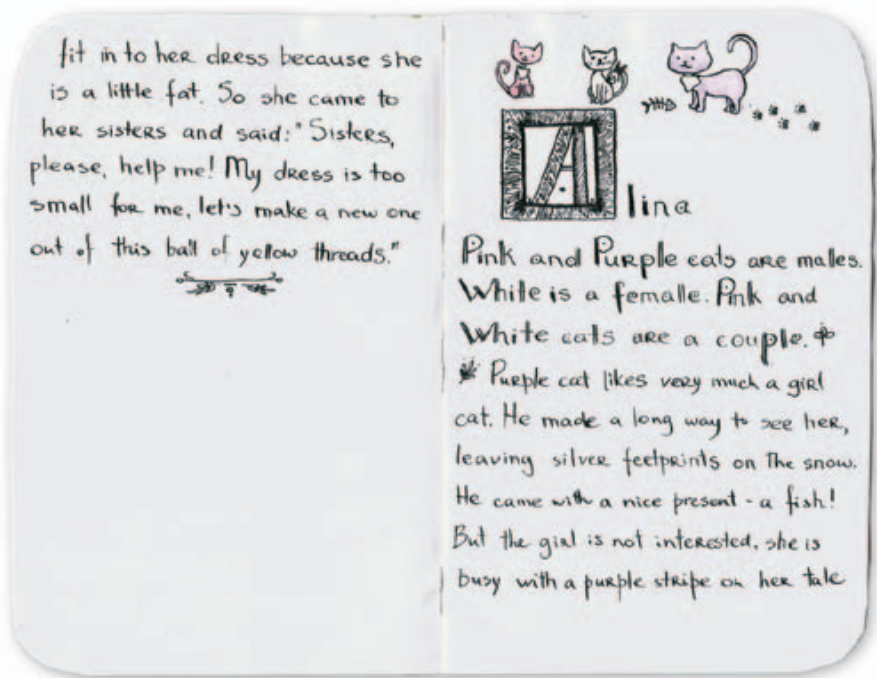 fit in to her dress because she
is a little fat. So she came to
her sisters and said: "Sisters,
please, help me! My dress is too
small for me, let's make a new one
out of this ball of yellow threads."
Alina
Pink and Purple cats are malles.
White is a femalle. Pink and
White cats are a couple.
Purple cat likes very much a girl
cat. He made a long way to see her,
leaving silver feetprints on the snow.
He came with a nice present - a fish!
But the girl is not interested, she is
busy with a purple stripe on her tale